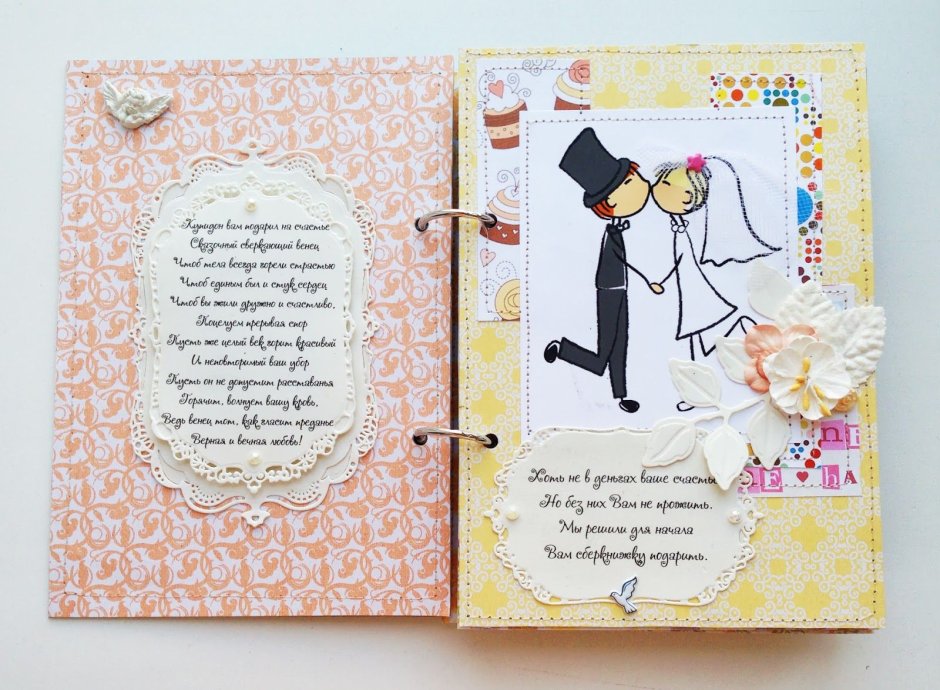 Купидон вам подарил на счастье
Сказочный сверкающий венец
Чтоб тела всегда горели страстью
Чтоб единым был и стук сердец
Чтоб вы жили дружно и счастливо,
Поцелуем прерывая спор
Пусть же целый век горит красивый
И неповторимый ваш убор
Пусть он не допустит расставанья
Горячит, волнует вашу кровь,
Ведь венец тот, как гласит преданье
Верная и вечная любовь!
Хоть не в деньгах ваше счастье
Но без них Вам не прожить.
Мы решили для начала
Вам сберкнижку подарить.